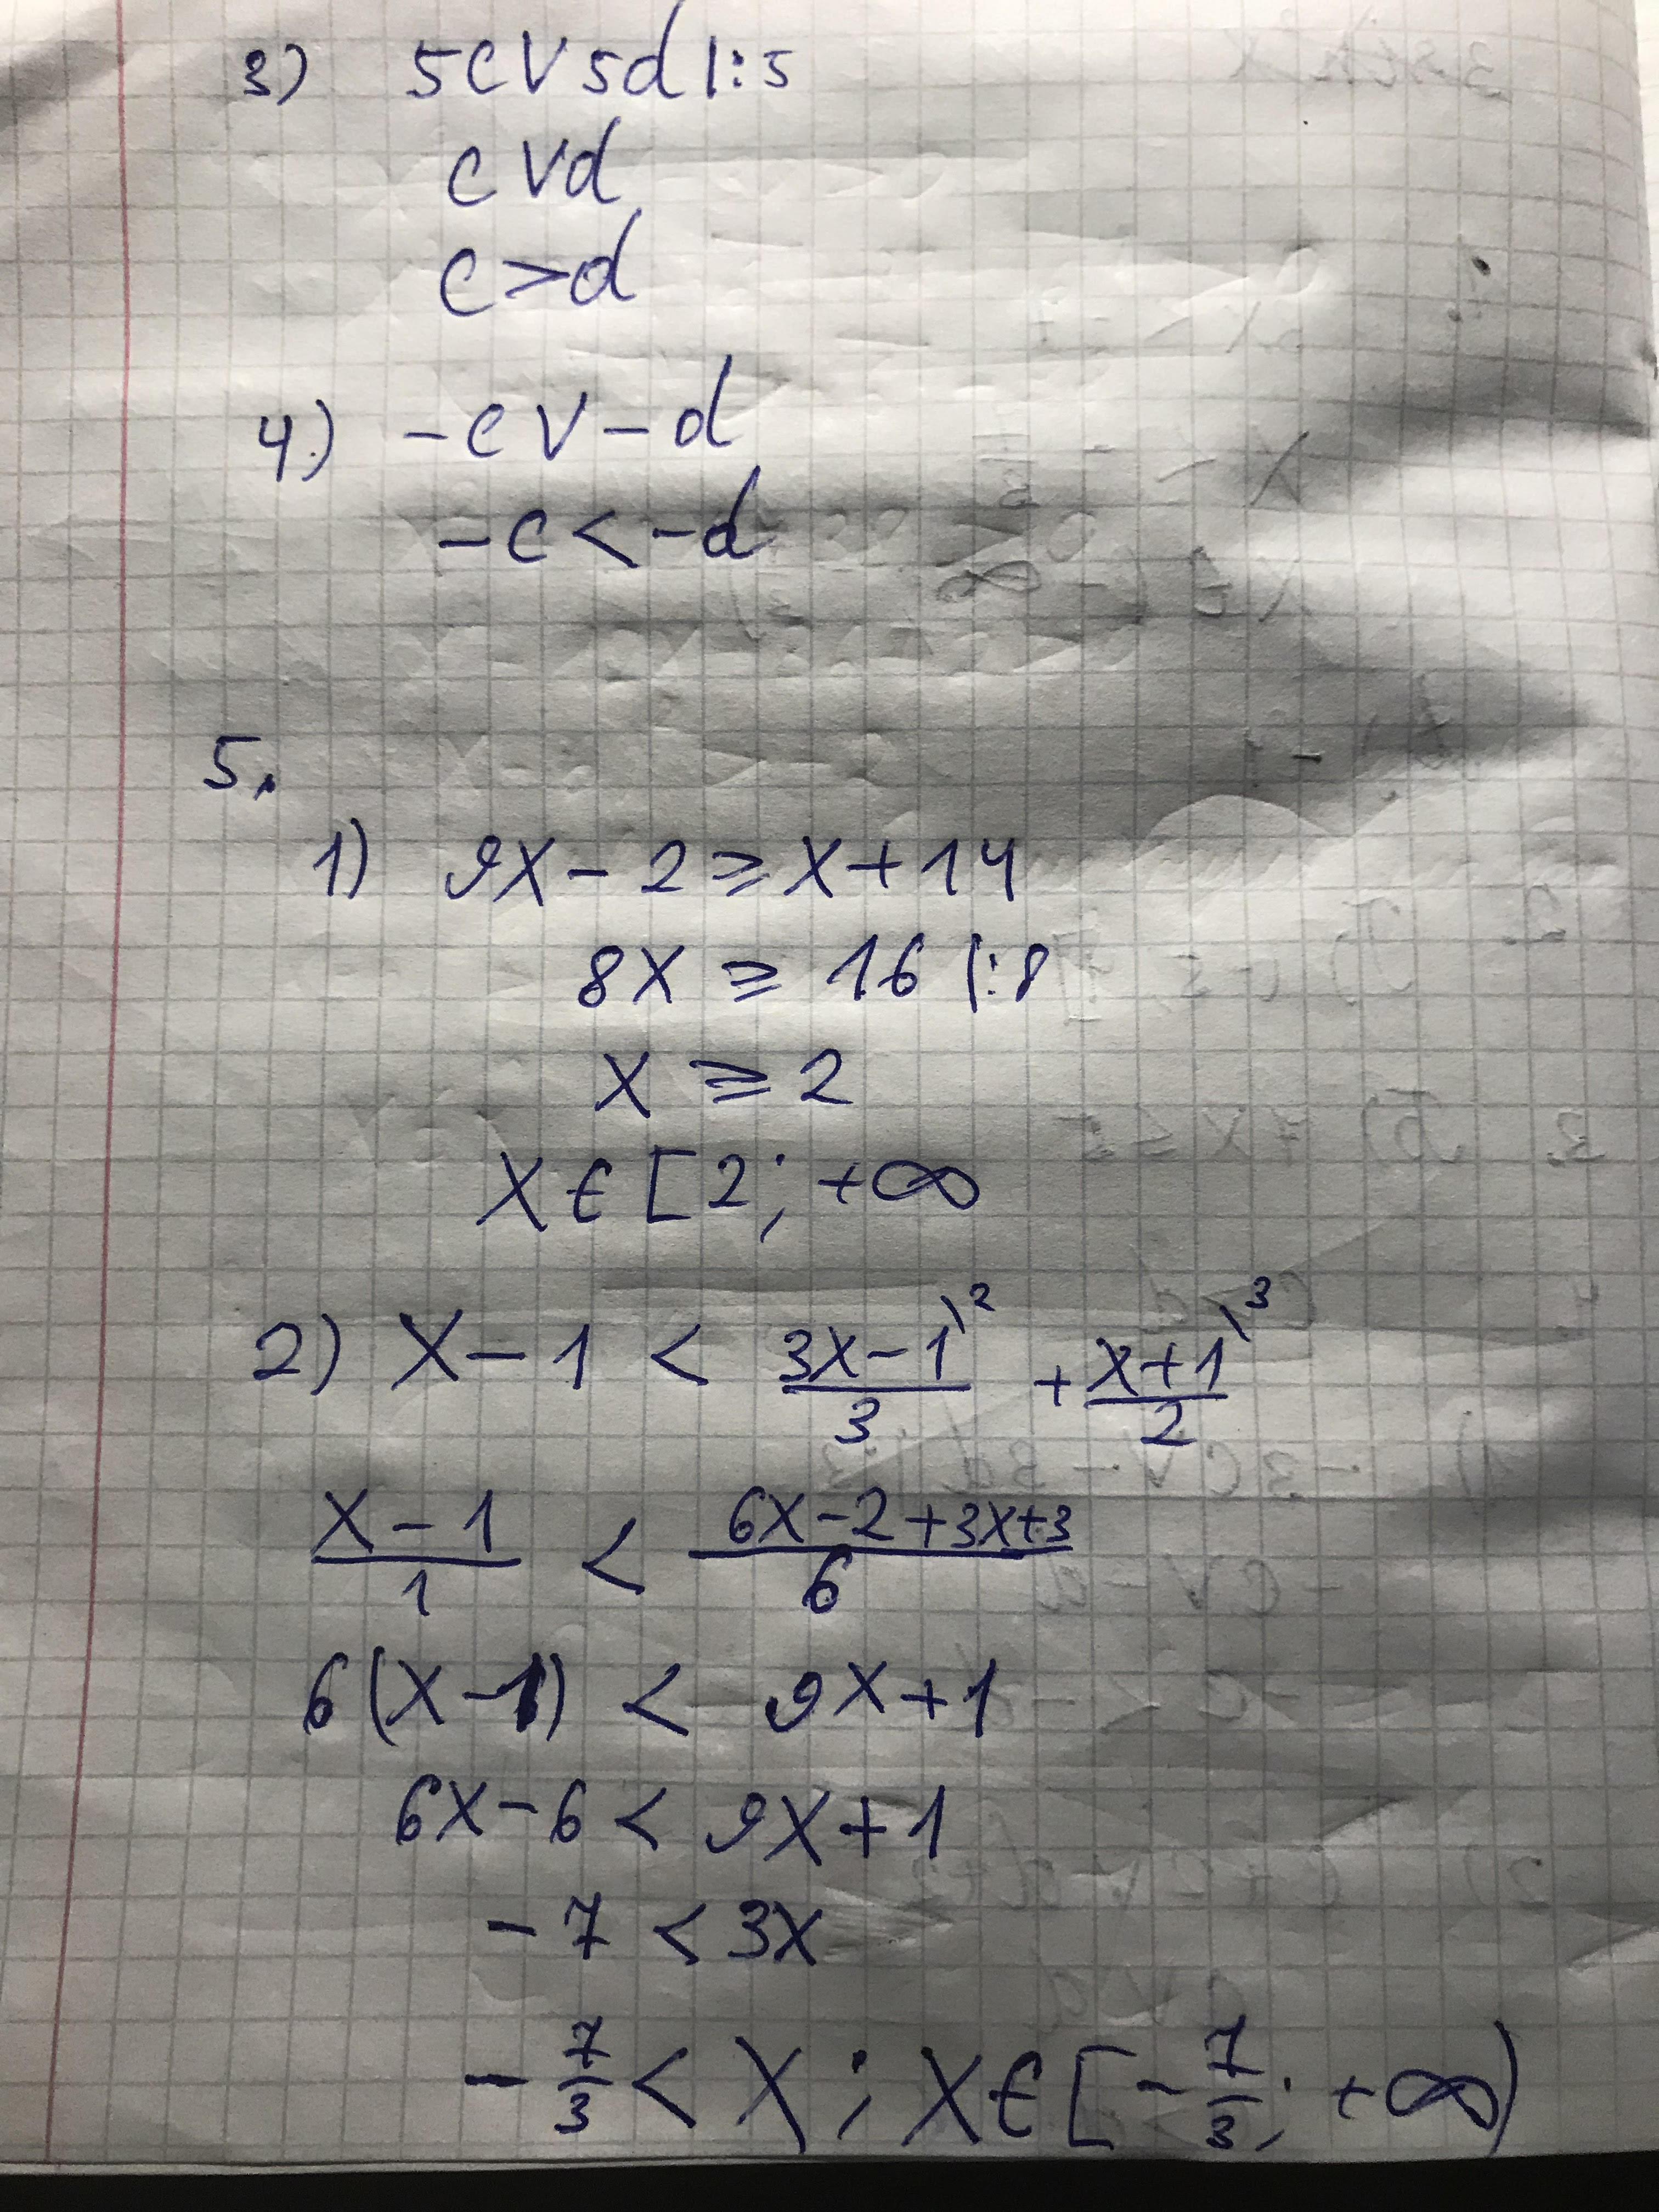 3) 5c V 5d |:5
c V d
c > d
4.) -c V -d
-c < -d
5.
1) 9x - 2 ⩾ x + 14
8x ⩾ 16 |:8
x ⩾ 2
x ∈ [2; +∞
2) x - 1 < (3x - 1)/3 \² + (x + 1)/2 \³
(x - 1)/1 < (6x - 2 + 3x + 3)/6
6(x - 1) < 9x + 1
6x - 6 < 9x + 1
-7 < 3x
-7/3 < x ; x ∈ [-7/3; +∞)